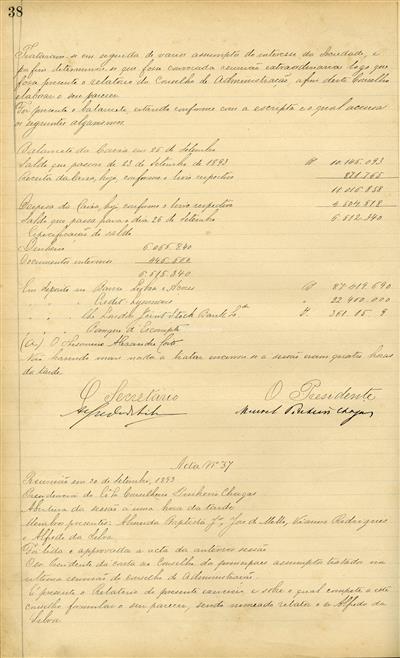 38
Trataram-se em seguida de varios assumptos de interesse da Sociedade, e
por fim determinou-se que fosse convocada reunião extraordinaria logo que
fosse presente o relatorio do Conselho de Administração, afim deste Conselho
elaborar o seu parecer.
Foi presente o balancete, estando conforme com a escripta e o qual accusa
os seguintes algarismos
Balancete da Caixa em 25 de Setembro
Saldo que passou de 23 de Setembro de 1893 10.145.093
Receita da Caixa, hoje, conforme o livro respectivo 871.765
11.016.858
Despeza da Caixa, hoje conforme o livro respectivo 4.504.518
Saldo que passa para o dia 26 de Setembro 6.512.340
Especificação do saldo
Dinheiro
Documentos internos
6.512.340
Em deposito no Banco Lisboa e Açores 87.419.690
" " " Credit Lyonnais 22.400.000
" " " The London Joint Stock Bank Ld. £ 361.15.9
" " " Comptoir d'Escompte
(a) O Thesoureiro Alexandre
Não havendo mais nada a tratar encerrou-se a sessão eram quatro horas
da tarde
O Secretário O Presidente
Alfredo da Silva Manoel Pinheiro Chagas
Acta Nº 37
Reunião em 20 de Setembro, 1893
Presidencia do Conselheiro Pinheiro Chagas
Abertura da sessão a uma hora da tarde
Membros presentes: Almeida, Baptista Jor., José de Mello, Rodrigues
e Alfredo da Silva.
Foi lida e approvada a acta da anterior sessão
O Sr. Presidente da conta ao Conselho do principaes assumptos tratados na
ultima sessão do Conselho de Administração.
É presente o Relatorio do presente exercicio e sobre o qual compete a este
conselho formular o seu parecer, sendo nomeado relator o Sr. Alfredo da
Silva.